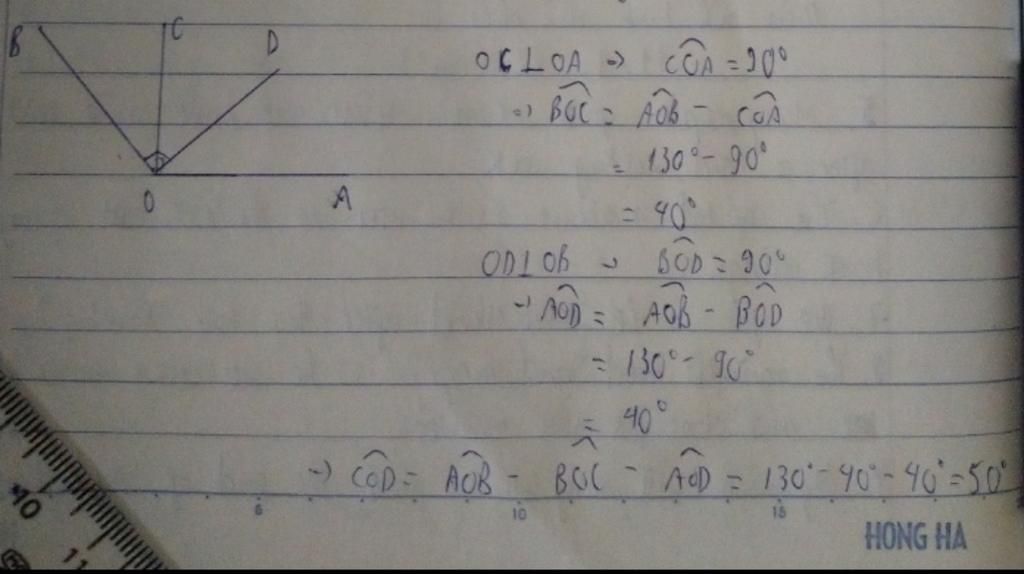 B C D
O A
OC⊥OA → CÔA = 90°
→ BÔC = AÔB - CÔA
= 130° - 90°
= 40°
OD⊥OB → BÔD = 90°
→ AÔD = AÔB - BÔD
= 130° - 90°
= 40°
→ CÔD = AÔB - BÔC - AÔD = 130° - 40° - 40° = 50°
5 10 15
HONG HA
10
11